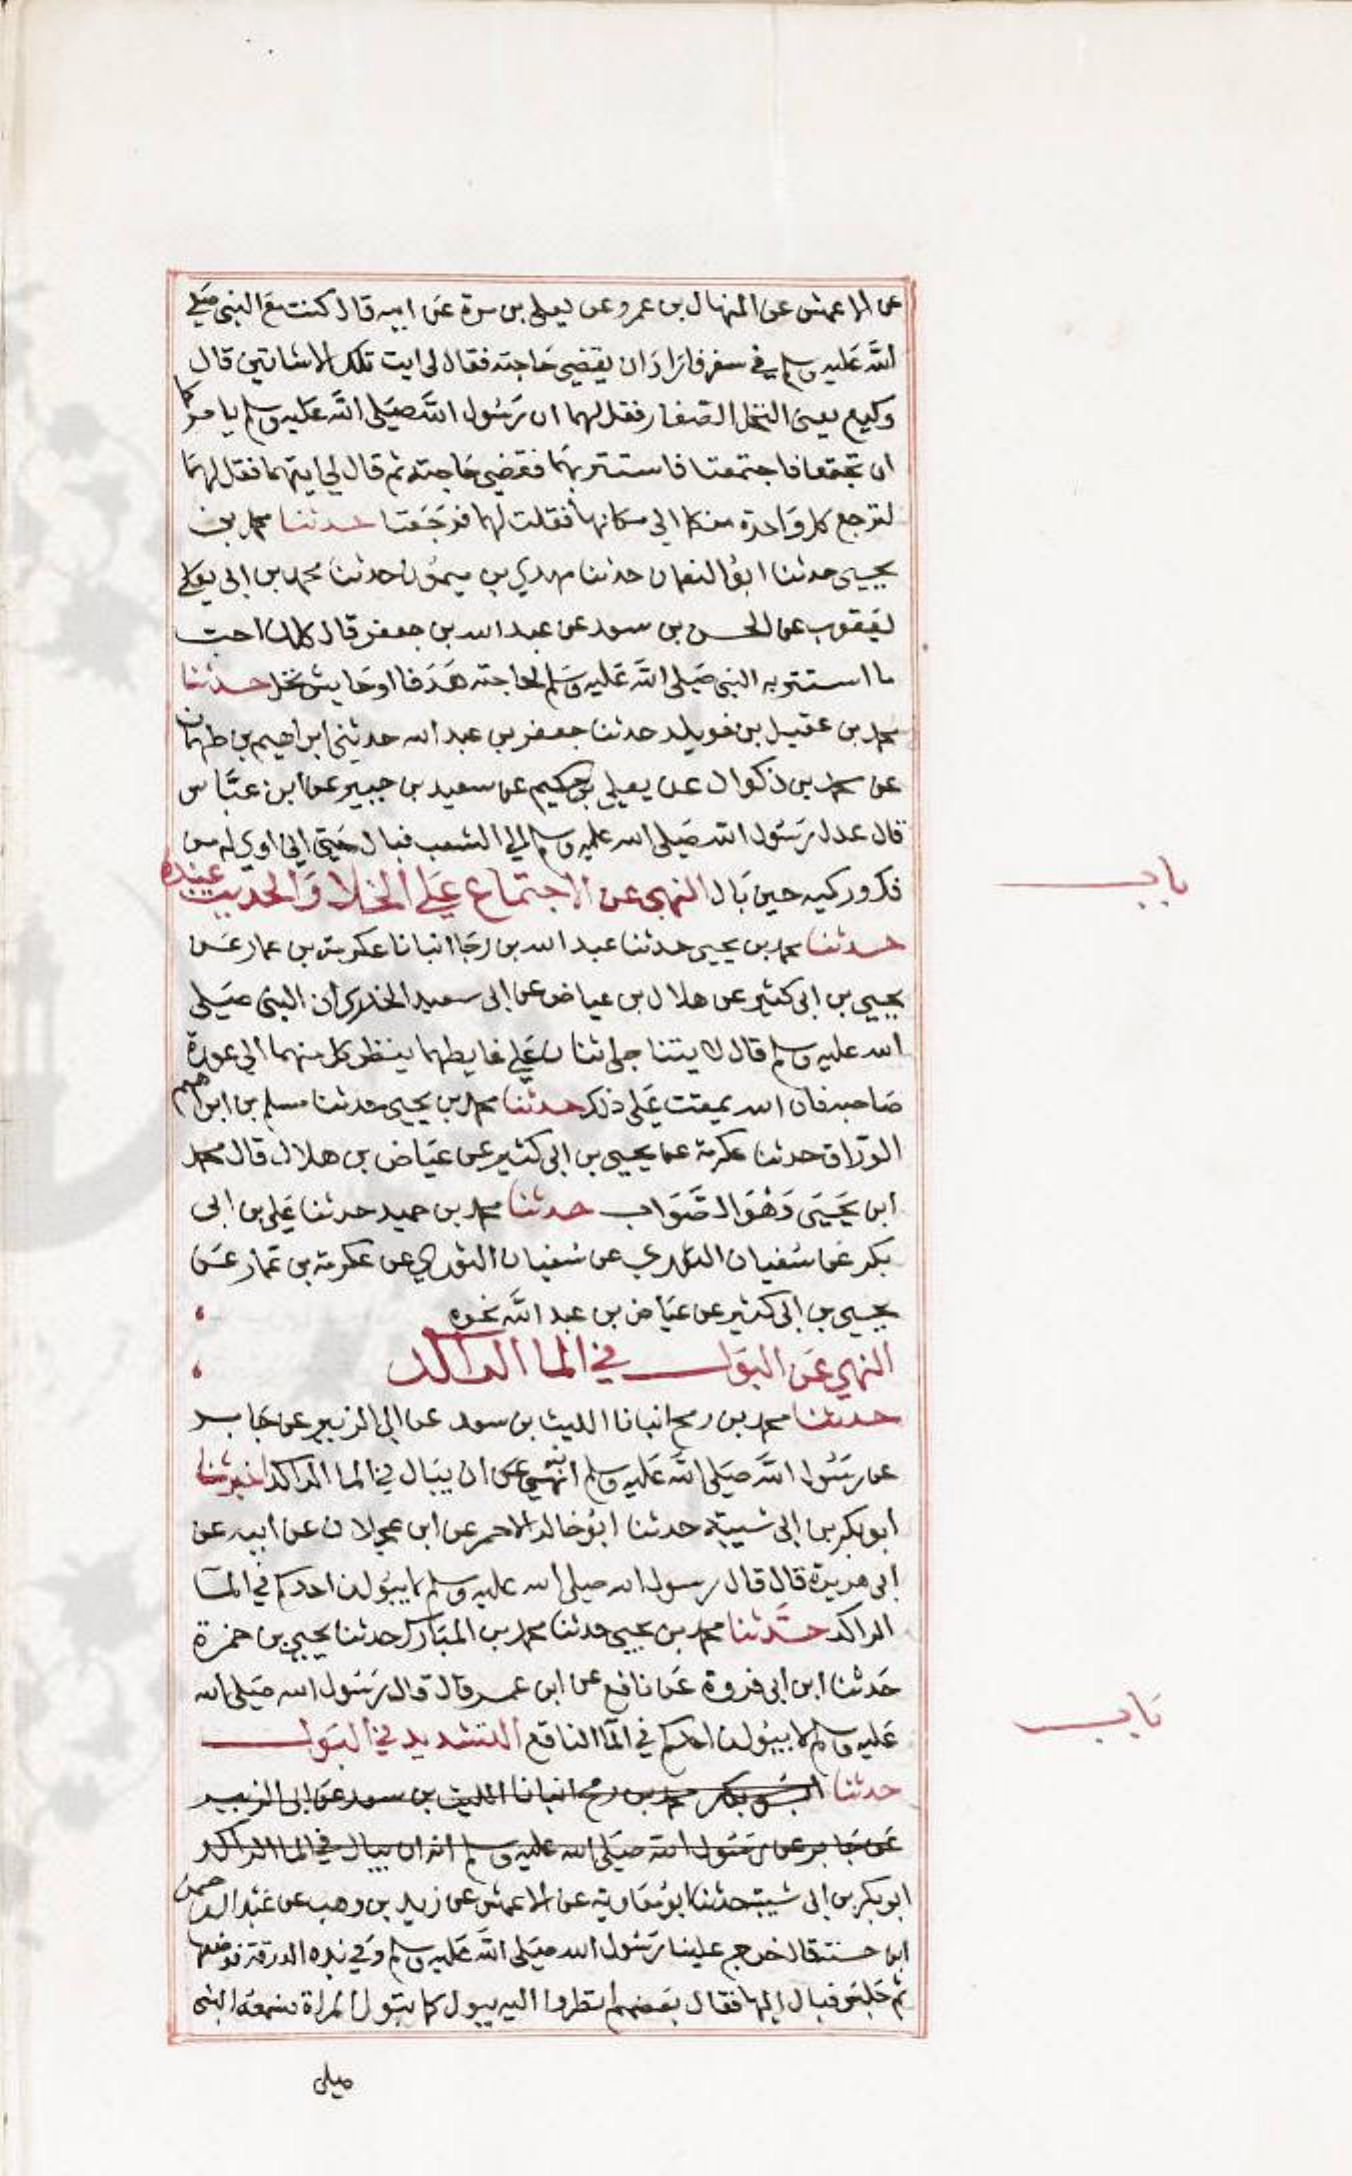 عن الاعمش عن المنهال بن عمرو عن يعلى بن مرة عن ابيه قال كنت مع النبى صلى
الله عليه وسلم في سفر فاراد ان يقضي حاجته فقال لى ايت تلك الاشاتين قال
وكيع يعنى النخل الصغار فقل لهما ان رسول الله صلى الله عليه وسلم يامركما
ان تجتمعا فاجتمعتا فاستتر بهما فقضى حاجته ثم قال لى ايتهما فقل لهما
لترجع كل واحدة منكما الى مكانها فقلت لهما فرجعتا حدثنا محمد بن
يحيى حدثنا ابو النعمان حدثنا مهدي بن ميمون حدثنا محمد بن ابى يعلى
يعقوب عن الحسن بن سعد عن عبد الله بن جعفر قال كان احب
ما استتر به النبى صلى الله عليه وسلم لحاجته هدفا او حايش نخل حدثنا
محمد بن عقيل بن خويلد حدثنا جعفر بن عبد الله حدثنى ابراهيم بن طهمان
عن محمد بن ذكوان عن يعلى بن حكيم عن سعيد بن جبير عن ابن عباس
قال عدل رسول الله صلى الله عليه وسلم الى الشعب فبال حتى انى اوي له من
فك وركيه حين بال النهى عن الاجتماع على الخلا والحديث عنده
باب
حدثنا محمد بن يحيى حدثنا عبد الله بن رجا انبانا عكرمة بن عمار عن
يحيى بن ابى كثير عن هلال بن عياض عن ابى سعيد الخدري ان النبى صلى
الله عليه وسلم قال لا يتناجى اثنان على غايطهما ينظر كل منهما الى عورة
صاحبه فان الله يمقت على ذلك حدثنا محمد بن يحيى حدثنا مسلم بن ابراهيم
الوراق حدثنا عكرمة عن يحيى بن ابى كثير عن عياض بن هلال قال محمد
ابن يحيى وهو الصواب حدثنا محمد بن حميد حدثنا على بن ابى
بكر عن سفيان الثوري عن عكرمة بن عمار عن
يحيى بن ابى كثير عن عياض بن عبد الله نحوه
النهي عن البول في الما الراكد
حدثنا محمد بن رمح انبانا الليث بن سعد عن ابى الزبير عن جابر
عن رسول الله صلى الله عليه وسلم انه نهى عن ان يبال في الما الراكد
ابو بكر بن ابى شيبة حدثنا ابو خالد الاحمر عن ابن عجلان عن ابيه عن
ابى هريرة قال قال رسول الله صلى الله عليه وسلم لا يبولن احدكم في الما
الراكد حدثنا محمد بن يحيى حدثنا محمد بن المبارك حدثنا يحيى بن حمزة
حدثنا ابن ابى فروة عن نافع عن ابن عمر قال قال رسول الله صلى الله
عليه وسلم لا يبولن احدكم في الما الناقع التشديد في البول
باب
حدثنا ابو بكر محمد بن رمح انبانا الليث بن سعد عن ابى الزبير
عن جابر عن رسول الله صلى الله عليه وسلم انه ان يبال في الما الراكد
ابو بكر بن ابى شيبة حدثنا ابو معاوية عن الاعمش عن زيد بن وهب عن عبد الرحمن
ابن حسنة قال خرج علينا رسول الله صلى الله عليه وسلم وفي يده الدرقة فوضعها
ثم جلس فبال اليها فقال بعضهم انظروا اليه يبول كما تبول المراة فسمعه النبى
صلى